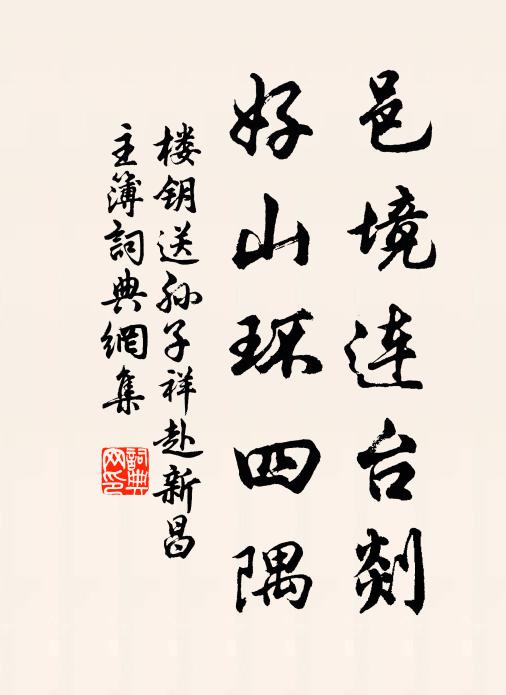 邑境连台剡
好山环四隅
楼钥送孙子祥赴新昌
主簿詞典網集
詞典
网印